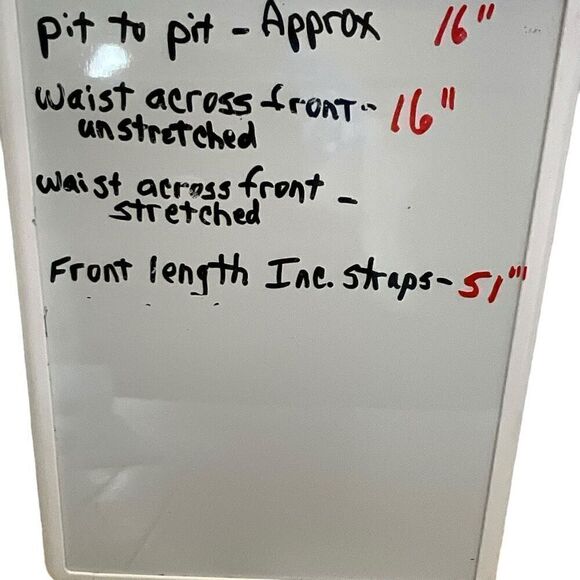 pit to pit - Approx 16"
waist across front - 16"
unstretched
waist across front -
stretched
Front length Inc. straps - 51"'